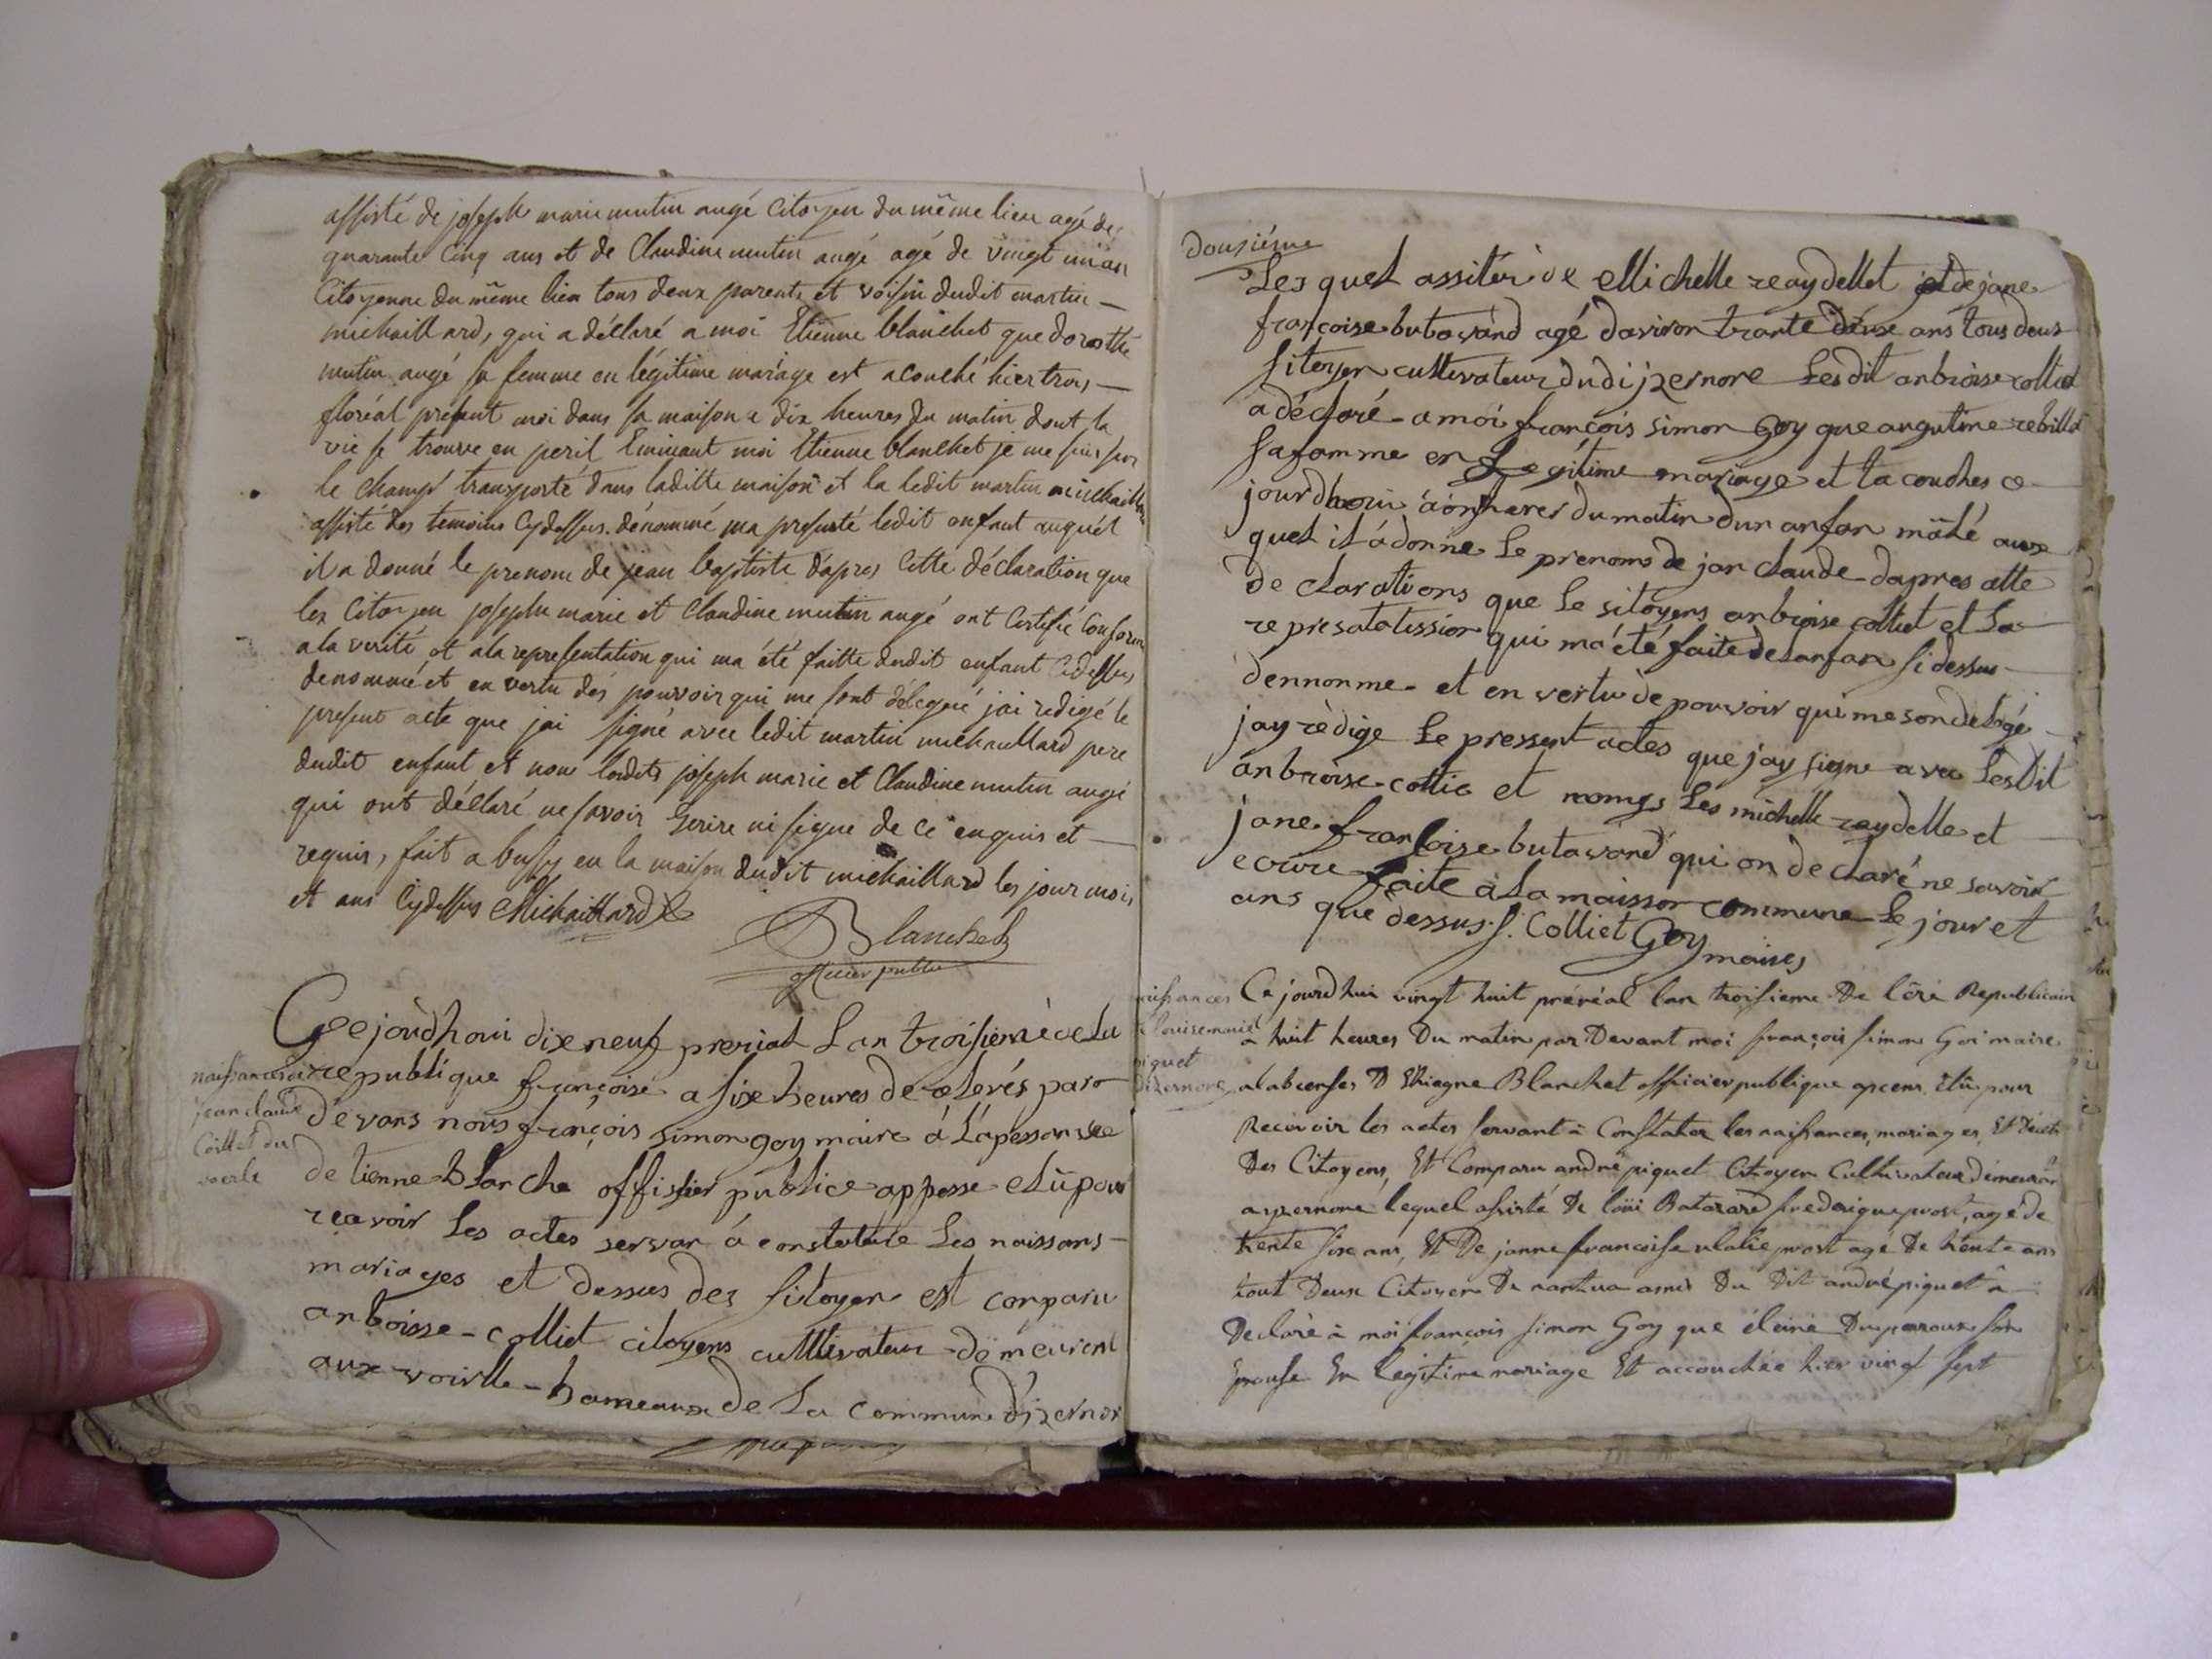 assisté de joseph marie mutin augé Citoyen du même lieu agé de
quarante Cinq ans et de Claudine mutin augé agé de vingt un an
Citoyenne du même lieu tous deux parents et voisin dudit martin
michaillard, qui a déclaré a moi Etienne blanchet que dorothé
mutin augé sa femme en légitime mariage est acouché hier trois
floréal present moi dans sa maison a dix heures du matin dont la
vie se trouve en peril Eminant moi Etienne blanchet je me suis sur
le champ transporté dans laditte maison et la ledit martin michaillard
assisté des temoins Cydessus dénommé ma presenté ledit enfant auquel
il a donné le prenom de jean baptiste dapres Cette déclaration que
les Citoyen joseph marie et Claudine mutin augé ont Certifié Conforme
a la verité et a la representation qui ma été faitte dudit enfant Cidessus
denommé et en vertu des pouvoir qui me sont délegué jai redigé le
present acte que jai signé avec ledit martin michaillard pere
dudit enfant et non lesdits joseph marie et Claudine mutin augé
qui ont déclaré ne savoir Ecrire ni signe de ce enquis et
requis, fait a bussy en la maison dudit michaillard les jour mois
et ans Cydessus Michaillard
Blanchet
officier public
naissances de
jean claude
Colliet du
voerle
Ce jourdhoui dix neuf prerial Lan troisieme de La
republique françoise a six heures de relevés par
devans nous françois simon goy maire á Lapessansse
detienne blanche offissier publice appesse elü pour
recevoir Les actes servan á constatute Les naissans
mariages et dessus des sitoyen est conparu
anboisse colliet citoyens culltivateur demeurent
aux voirlle hameaux de La commune dizernor
dousiéme
Lesquel assiter de Michelle reaydellet et de jane
françoise butavand agé daviron trante deuse ans tous deus
sitoyen cultivateur dudi jzernore Lesdit anbroise colliet
a décloré a moi françois simon Goy que augutine rebillet
sa famme en Legitime mariage et ta couches ce
jourdhoui á onz heures du matin dun anfan mâlé aux
quel il á donne Le prenoms de jan claude dapres cette
declarations que Le sitoyens anbroise colliet et La
represatatission qui má été faite de lanfan si dessus
dennonme et en vertu de pouvoir qui me son delegé
jay rèdige Le pressent actes que jay signe avec Lesdit
anbroise collie et nomgs Les michelle raydelle et
jane francoise butavand qui on declaré ne savoir
ecrire faite à La maisson commune Le jour et
ans que dessus. J. Colliet Goy
maires
naissances
louise marie
piquet
dizernore
Ce jourdhui vingt huit préréal lan troisieme De lére Republicain
a huit heures Du matin par Devant moi françois simon Goi maire
a labcenses D Ethiegne Blanchet officier publique apcens élü pour
Recevoir les actes servant à Constater les naissances, mariages, Et Décéts
Des Citoyens, Et Comparu andré piquet Citoyen Cultivateur démeuran
a yzernore lequel assisté De loüi Batarard frederique prost, agé de
trente six ans, Et De janne francoise ulalie prost agé De trente ans
tout Deux Citoyen De nantua amis Du Dit andré piquet à
Declaré à moi françois simon Goy que éleine Duparoux son
Epouse En legitime mariage Et accouchée hier vingt sept